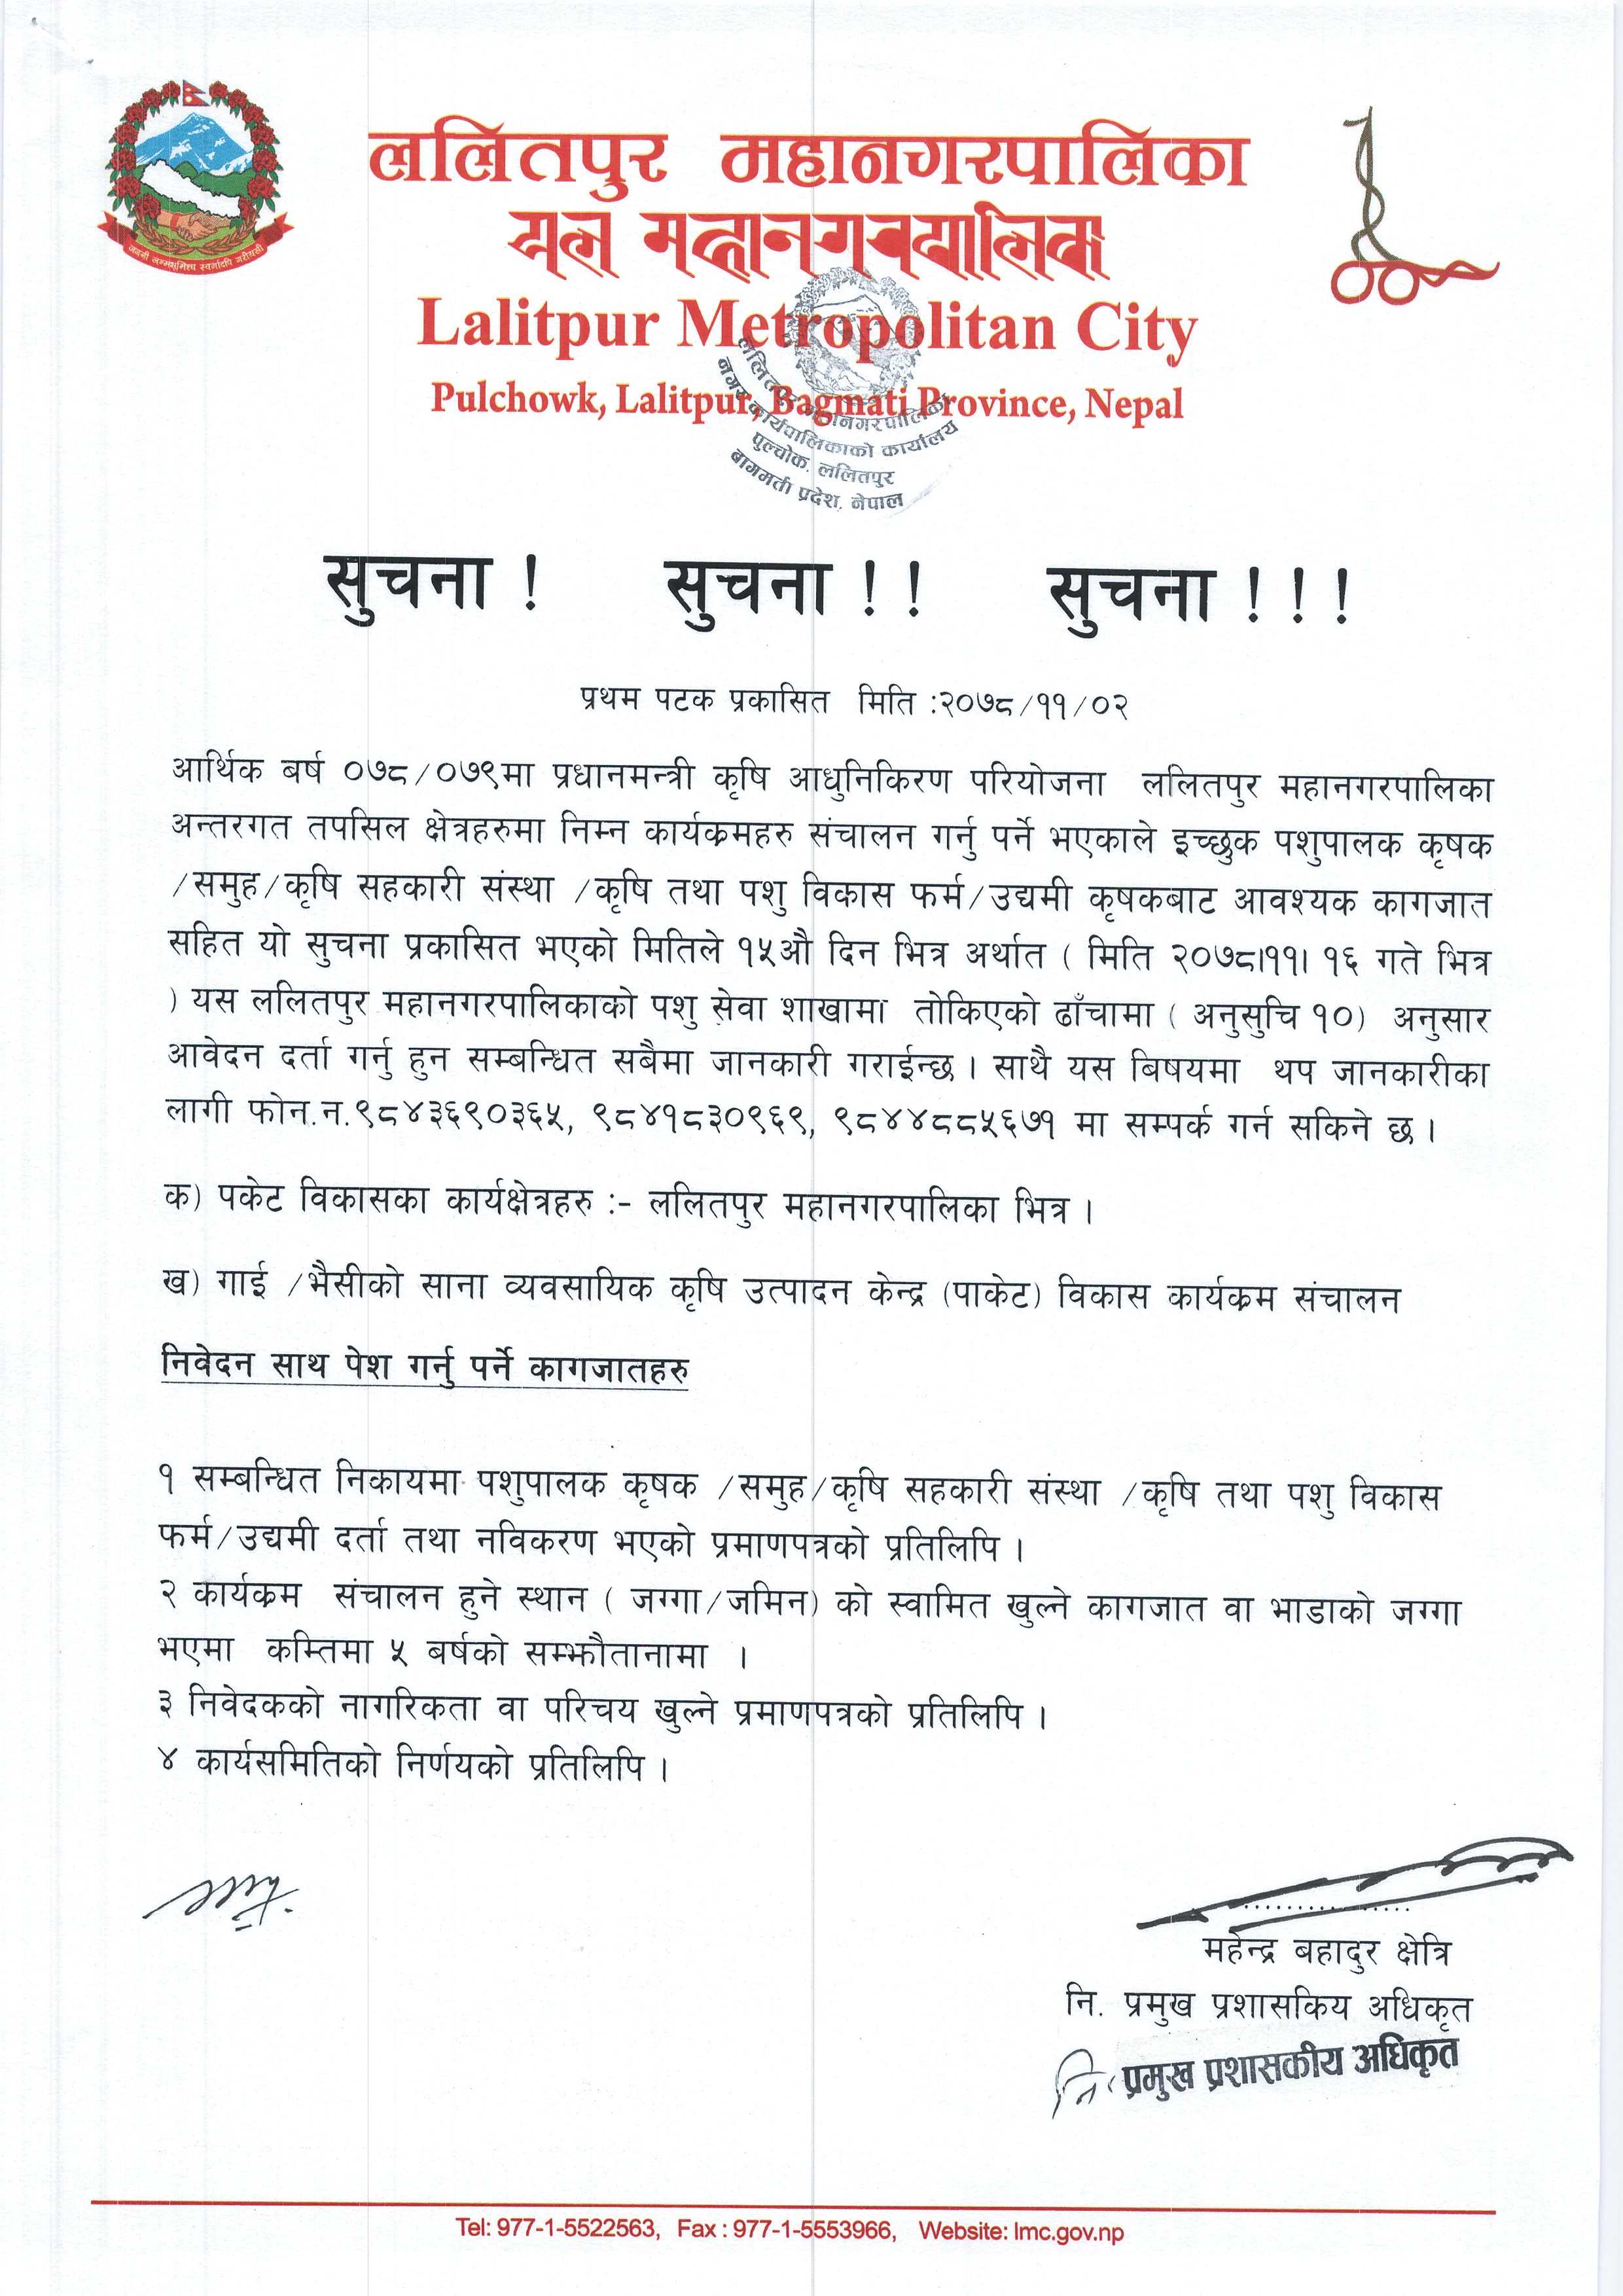 जननी जन्मभूमिश्च स्वर्गादपि गरीयसी
ललितपुर महानगरपालिका
यल महानगरपालिका
Lalitpur Metropolitan City
Pulchowk, Lalitpur, Bagmati Province, Nepal
ललितपुर महानगरपालिका
नगर कार्यपालिकाको कार्यालय
पुल्चोक, ललितपुर
बागमती प्रदेश, नेपाल
सुचना ! सुचना ! ! सुचना ! ! !
प्रथम पटक प्रकासित मिति :२०७८/११/०२
आर्थिक बर्ष ०७८/०७९मा प्रधानमन्त्री कृषि आधुनिकिरण परियोजना ललितपुर महानगरपालिका
अन्तरगत तपसिल क्षेत्रहरुमा निम्न कार्यक्रमहरु संचालन गर्नु पर्ने भएकाले इच्छुक पशुपालक कृषक
/समुह/कृषि सहकारी संस्था /कृषि तथा पशु विकास फर्म/उद्यमी कृषकबाट आवश्यक कागजात
सहित यो सुचना प्रकासित भएको मितिले १५औ दिन भित्र अर्थात ( मिति २०७८।११। १६ गते भित्र
) यस ललितपुर महानगरपालिकाको पशु सेवा शाखामा तोकिएको ढाँचामा ( अनुसुचि १०) अनुसार
आवेदन दर्ता गर्नु हुन सम्बन्धित सबैमा जानकारी गराईन्छ । साथै यस बिषयमा थप जानकारीका
लागी फोन.न.९८४३६९०३६५, ९८४१८३०९६९, ९८४४८८५६७१ मा सम्पर्क गर्न सकिने छ ।
क) पकेट विकासका कार्यक्षेत्रहरु :- ललितपुर महानगरपालिका भित्र ।
ख) गाई /भैसीको साना व्यवसायिक कृषि उत्पादन केन्द्र (पाकेट) विकास कार्यक्रम संचालन
निवेदन साथ पेश गर्नु पर्ने कागजातहरु
१ सम्बन्धित निकायमा पशुपालक कृषक /समुह/कृषि सहकारी संस्था /कृषि तथा पशु विकास
फर्म/उद्यमी दर्ता तथा नविकरण भएको प्रमाणपत्रको प्रतिलिपि ।
२ कार्यक्रम संचालन हुने स्थान ( जग्गा/जमिन) को स्वामित खुल्ने कागजात वा भाडाको जग्गा
भएमा कम्तिमा ५ बर्षको सम्झौतानामा ।
३ निवेदकको नागरिकता वा परिचय खुल्ने प्रमाणपत्रको प्रतिलिपि ।
४ कार्यसमितिको निर्णयको प्रतिलिपि ।
महेन्द्र बहादुर क्षेत्रि
नि. प्रमुख प्रशासकिय अधिकृत
नि. प्रमुख प्रशासकीय अधिकृत
Tel: 977-1-5522563, Fax : 977-1-5553966, Website: lmc.gov.np